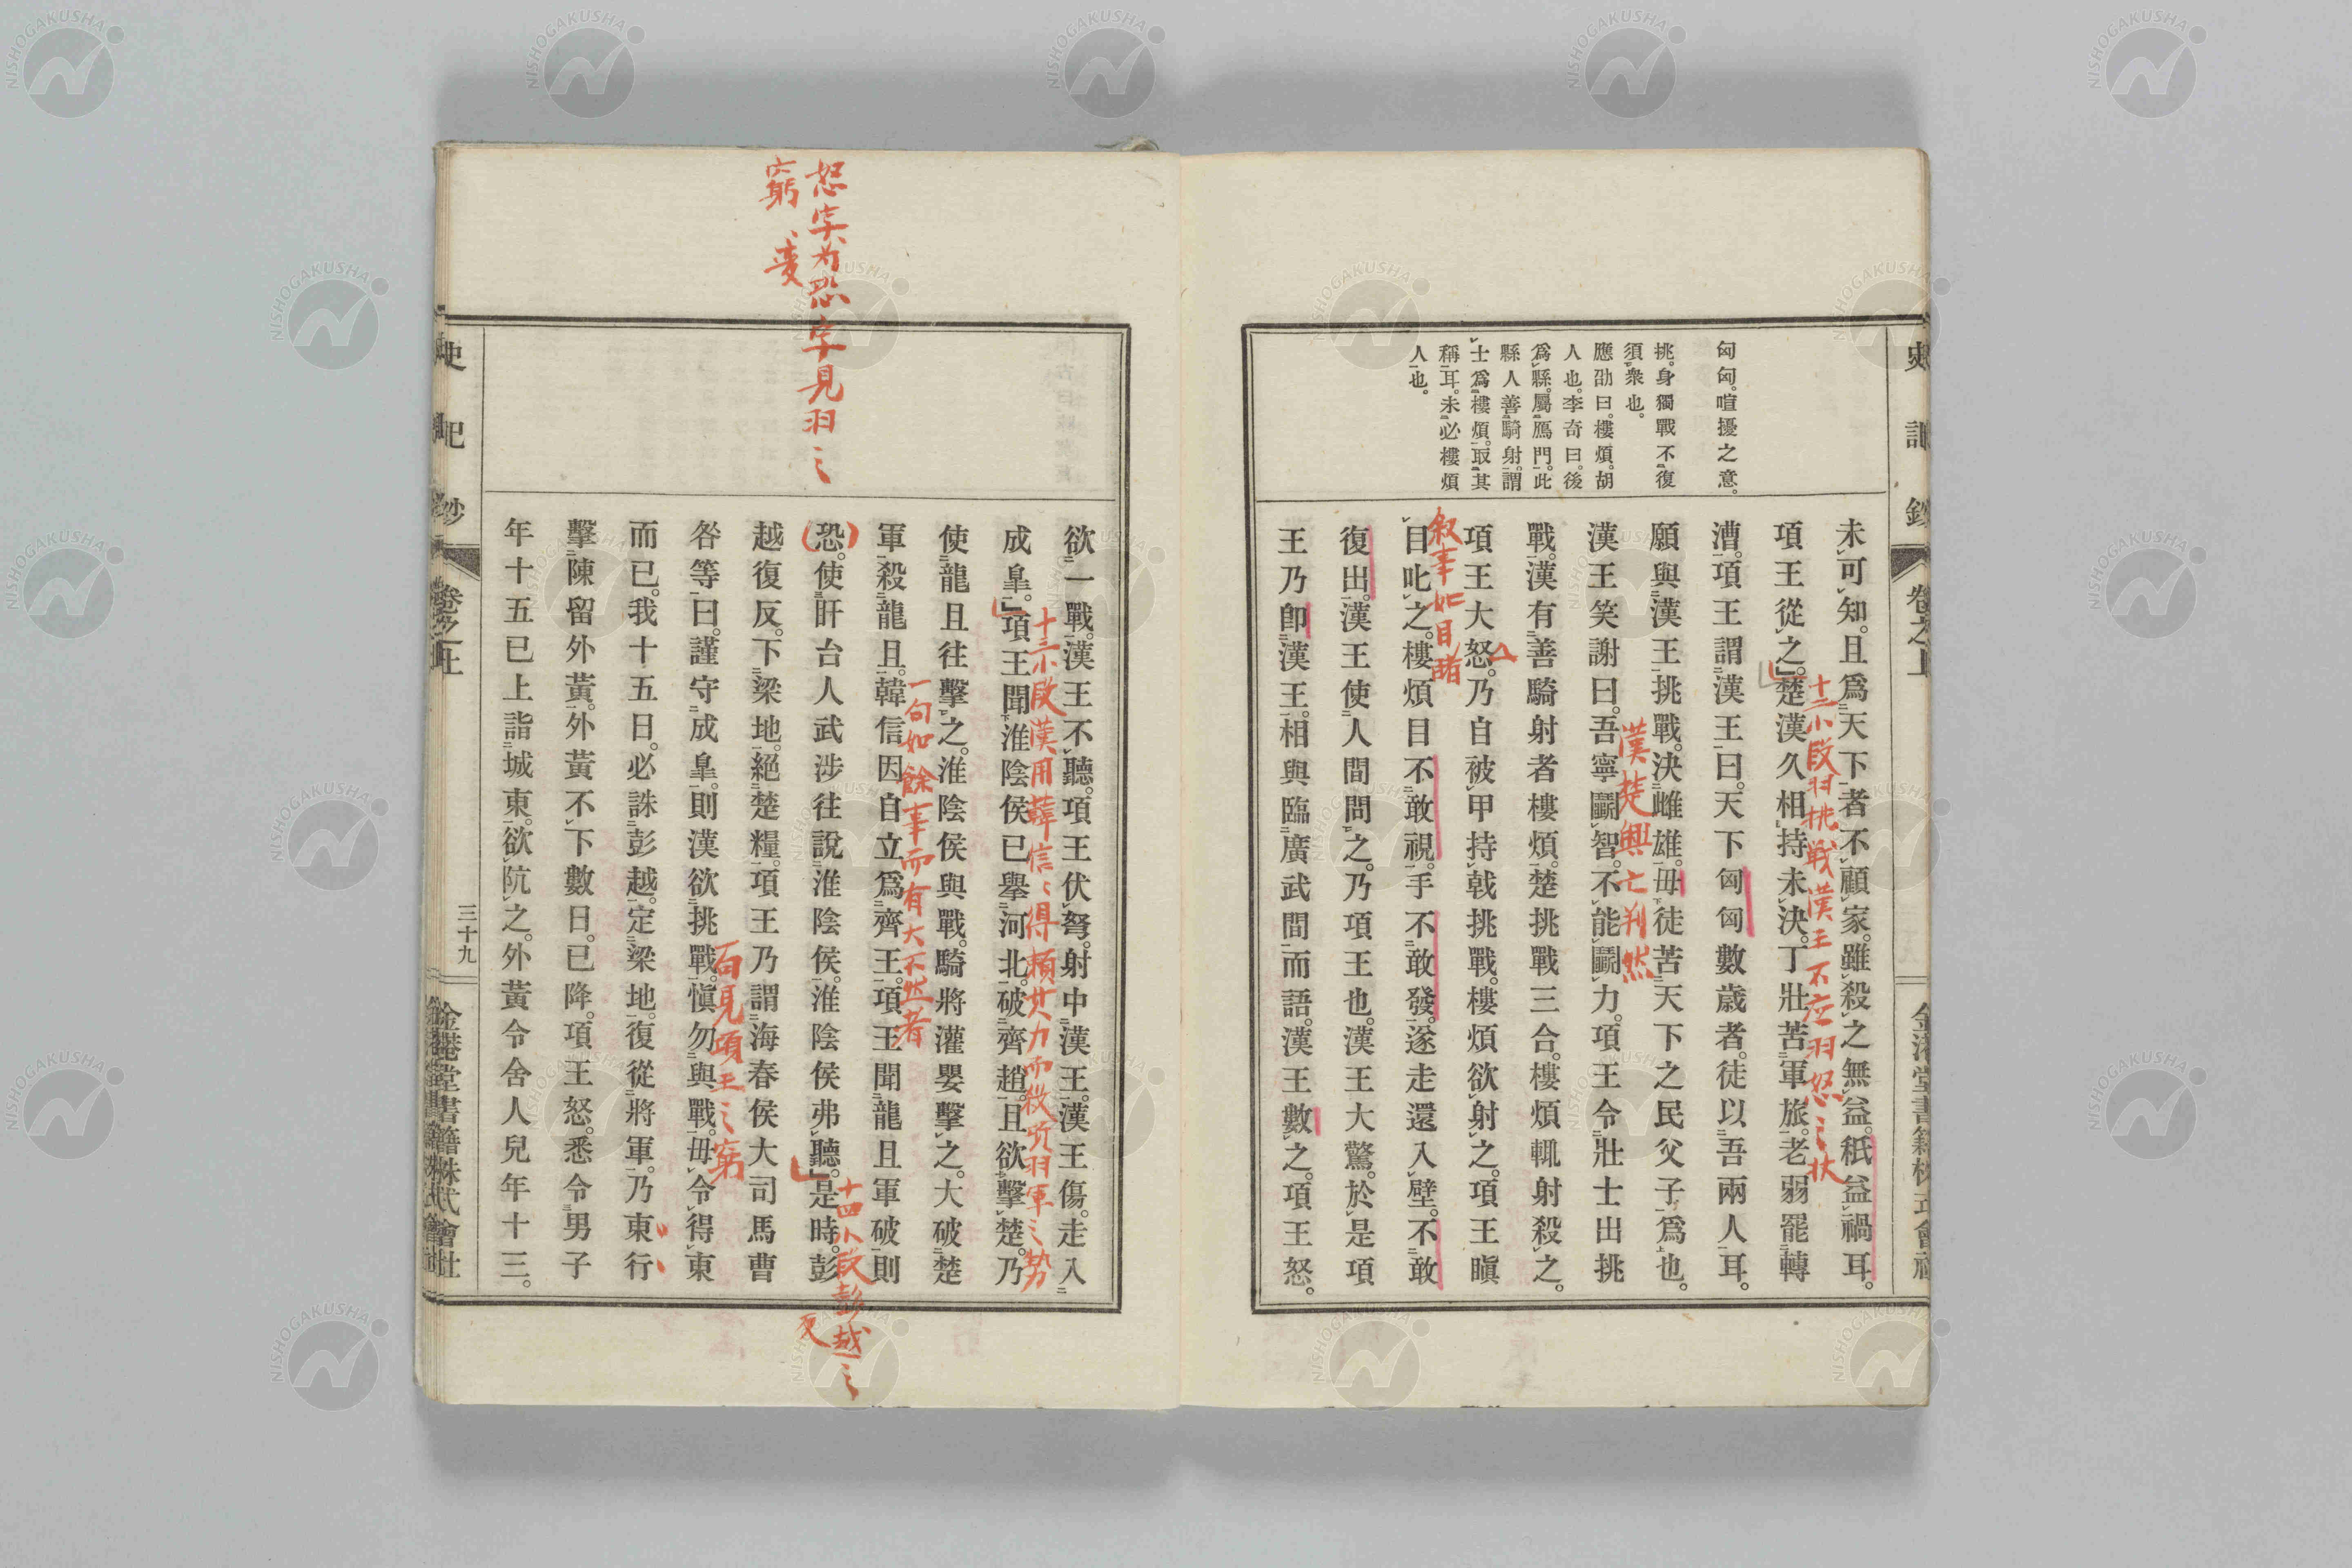 史記鈔
卷之上
金港堂書籍株式會社
匈匈。喧擾之意。
挑。身獨戰不復
須衆也。
應劭曰。樓煩。胡
人也。李奇曰。後
爲縣。屬鴈門。此
縣人善騎射。謂
士爲樓煩。取其
稱耳。未必樓煩
人也。
未可知。且爲天下者不顧家。雖殺之無益。秖益禍耳。
項王從之。」楚漢久相持未決。丁壯苦軍旅。老弱罷轉
漕。項王謂漢王曰。天下匈匈數歲者。徒以吾兩人耳。
願與漢王挑戰。決雌雄。毋徒苦天下之民父子爲也。
漢王笑謝曰。吾寧鬭智。不能鬭力。項王令壯士出挑
戰。漢有善騎射者樓煩。楚挑戰三合。樓煩輒射殺之。
項王大怒。乃自被甲持戟挑戰。樓煩欲射之。項王瞋
目叱之。樓煩目不敢視。手不敢發。遂走還入壁。不敢
復出。漢王使人間問之。乃項王也。漢王大驚。於是項
王乃卽漢王。相與臨廣武間而語。漢王數之。項王怒。
十二小段羽挑戦漢王不应羽怒之状
漢楚興亡判然
叙事如目睹
欲一戰。漢王不聽。項王伏弩。射中漢王。漢王傷。走入
成皐。」項王聞淮陰侯已擧河北。破齊趙。且欲擊楚。乃
使龍且往擊之。淮陰侯與戰。騎將灌嬰擊之。大破楚
軍。殺龍且。韓信因自立爲齊王。項王聞龍且軍破。則
恐。使盱台人武涉往說淮陰侯。淮陰侯弗聽。」是時。彭
越復反。下梁地。絕楚糧。項王乃謂海春侯大司馬曹
咎等曰。謹守成皐。則漢欲挑戰。愼勿與戰。毋令得東
而已。我十五日。必誅彭越。定梁地。復從將軍。乃東行
擊陳留外黃。外黃不下數日。已降。項王怒。悉令男子
年十五已上詣城東。欲阬之。外黃令舍人兒年十三。
十三小段漢用韓信〻得賴其力而殺項羽軍之勢
一句如餘事而有大不然者
十四小段彭越之
反
百見項王之窮
怒字为恐字見羽之
窮、変
史記鈔
卷之上
三十九
金港堂書籍株式會社